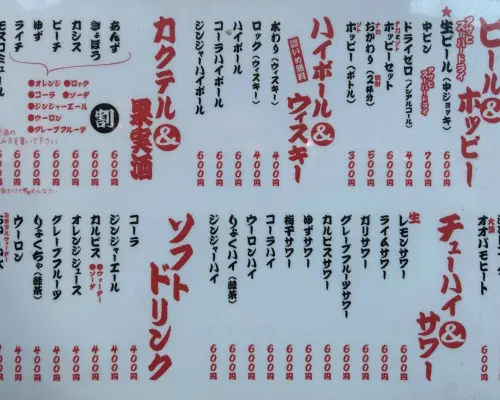 ビール&ホッピー
アサヒスーパードライ
★生ビール(中ジョッキ) 6
中ビン 700円
アサヒスーパードライ
ドライゼロ(ノンアルコール) 400円
ナカとソト
ホッピーセット 600円
ナカ 焼酎
おかわり(2杯分) 500円
ソト
ホッピー(ボトル) 300円
ハイボール&ウィスキー
濃いめ無料
水わり(ウィスキー) 400円
ロック(ウィスキー) 400円
ハイボール 600円
コーラハイボール 600円
ジンジャーハイボール 600円
カクテル&果実酒
あんず 600円
きょほう 600円
カシス 600円
ピーチ 600円
ゆず 600円
ライチ 600円
●オレンジ ●ロック
●コーラ ●ソーダ
●ジンジャーエール
●ウーロン
●グレープフルーツ
割
モスコミュール
チューハイ&サワー
オオバモヒート
生
レモンサワー 600円
ライムサワー 600円
ガリサワー 600円
グレープフルーツサワー 600円
カルピスサワー 600円
ゆずサワー 600円
梅干サワー 600円
ウーロンハイ 600円
りょくハイ(緑茶) 600円
ジンジャーハイ 600円
ソフトドリンク
コーラ 400円
ジンジャーエール 400円
カルピス ●ウォーター ●ソーダ 400円
オレンジジュース 400円
グレープフルーツ 400円
りょくちゃ(緑茶) 400円
ウーロン 400円